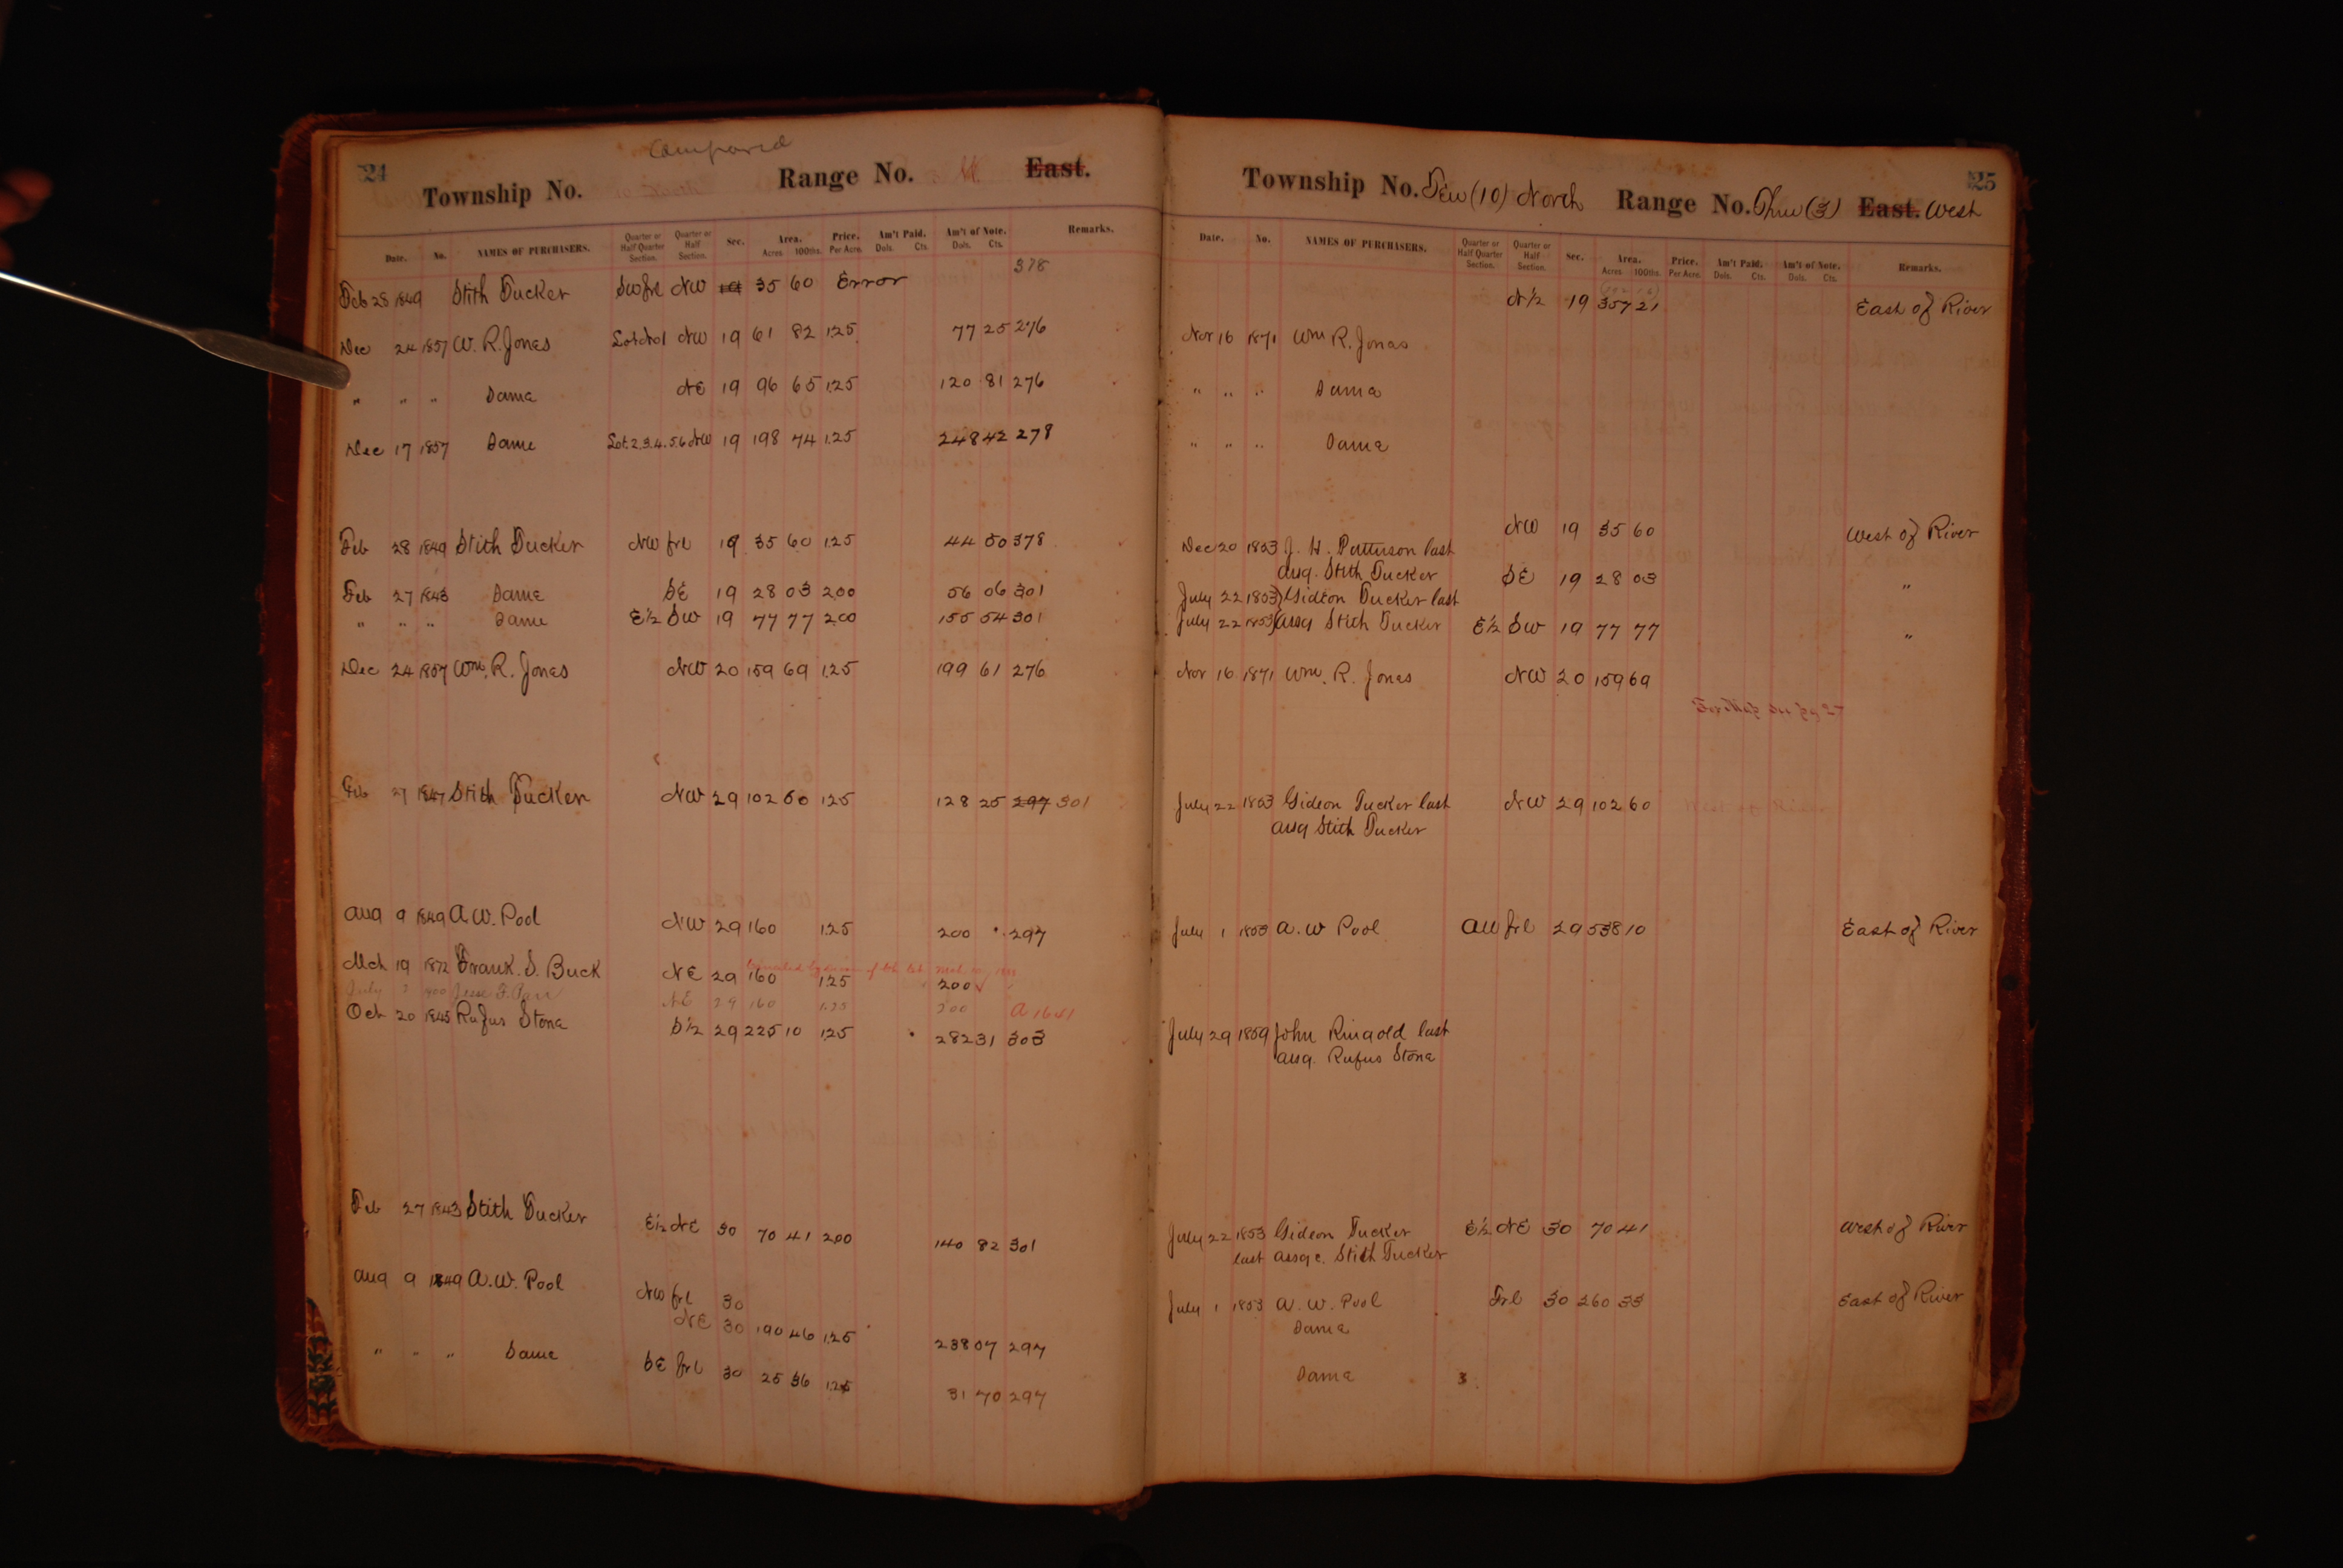 Compared
24
Township No. 10 North Range No. 3 W. East.
Date. No. NAMES OF PURCHASERS. Quarter or Half Quarter Section. Quarter or Half Section. Sec. Area. Acres. 100ths. Price. Per Acre. Am't Paid. Dols. Cts. Am't of Note. Dols. Cts. Remarks.
378
Feb 28 1849 Stith Tucker SW frl NW 19 35 60 Error
Dec 24 1857 W. R. Jones Lot No 1 NW 19 61 82 1.25 77 25 276
" " " Same NE 19 96 65 1.25 120 81 276
Dec 17 1857 Same Lot. 2.3.4.5.6 NW 19 198 74 1.25 248 42 278
Feb 28 1849 Stith Tucker NW frl 19 35 60 1.25 44 50 378
Feb 27 1843 Same SE 19 28 03 2.00 56 06 301
" " " Same E½ SW 19 77 77 2.00 155 54 301
Dec 24 1857 Wm. R. Jones NW 20 159 69 1.25 199 61 276
Feb 27 1847 Stith Tucker NW 29 102 60 1.25 128 25 297 301
Aug 9 1849 A. W. Pool NW 29 160 1.25 200 297
Mch 19 1872 Frank. S. Buck NE 29 160 1.25 200
July 1900 Jesse F. NE 29 160 1.25 200 A 1641
Oct 20 1845 Rufus Stone S½ 29 225 10 1.25 282 31 303
Feb 27 1843 Stith Tucker E½ NE 30 70 41 2.00 140 82 301
Aug 9 1849 A. W. Pool NW frl 30
NE 30 190 46 1.25 238 07 297
" " " Same SE frl 30 25 36 1.25 31 70 297
25
Township No. Ten (10) North Range No. Three (3) East. West
Date. No. NAMES OF PURCHASERS. Quarter or Half Quarter Section. Quarter or Half Section. Sec. Area. Acres. 100ths. Price. Per Acre. Am't Paid. Dols. Cts. Am't of Note. Dols. Cts. Remarks.
N½ 19 357 21 East of River
Nov 16 1871 Wm R. Jones
" " " Same
" " " Same
NW 19 35 60 West of River
Dec 20 1853 J. H. Patterson last
assg. Stith Tucker SE 19 28 03 "
July 22 1853 Gideon Tucker last
July 22 1853 assg Stith Tucker E½ SW 19 77 77 "
Nov 16 1871 Wm. R. Jones NW 20 159 69
For Map see pg 27
July 22 1853 Gideon Tucker last NW 29 102 60
assg Stith Tucker
July 1 1853 A. W Pool All frl 29 538 10 East of River
July 29 1859 John Ringold last
assg. Rufus Stone
July 22 1853 Gideon Tucker E½ NE 30 70 41 West of River
last assge. Stith Tucker
July 1 1853 A. W. Pool Frl 30 260 33 East of River
Same
Same 3